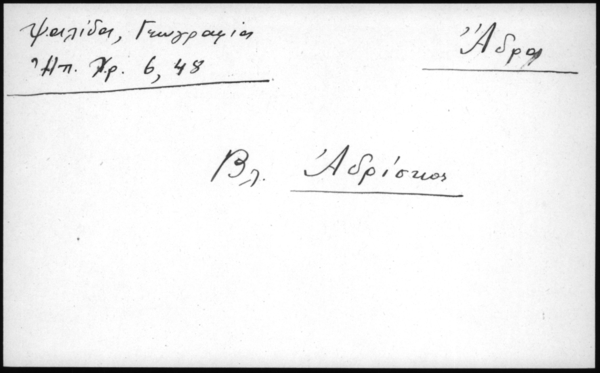 Ψαλίδα, Γεωγραφία
Ἠπ. Χρ. 6, 48
Ἄδρα
Βλ. Ἀδρίσκος